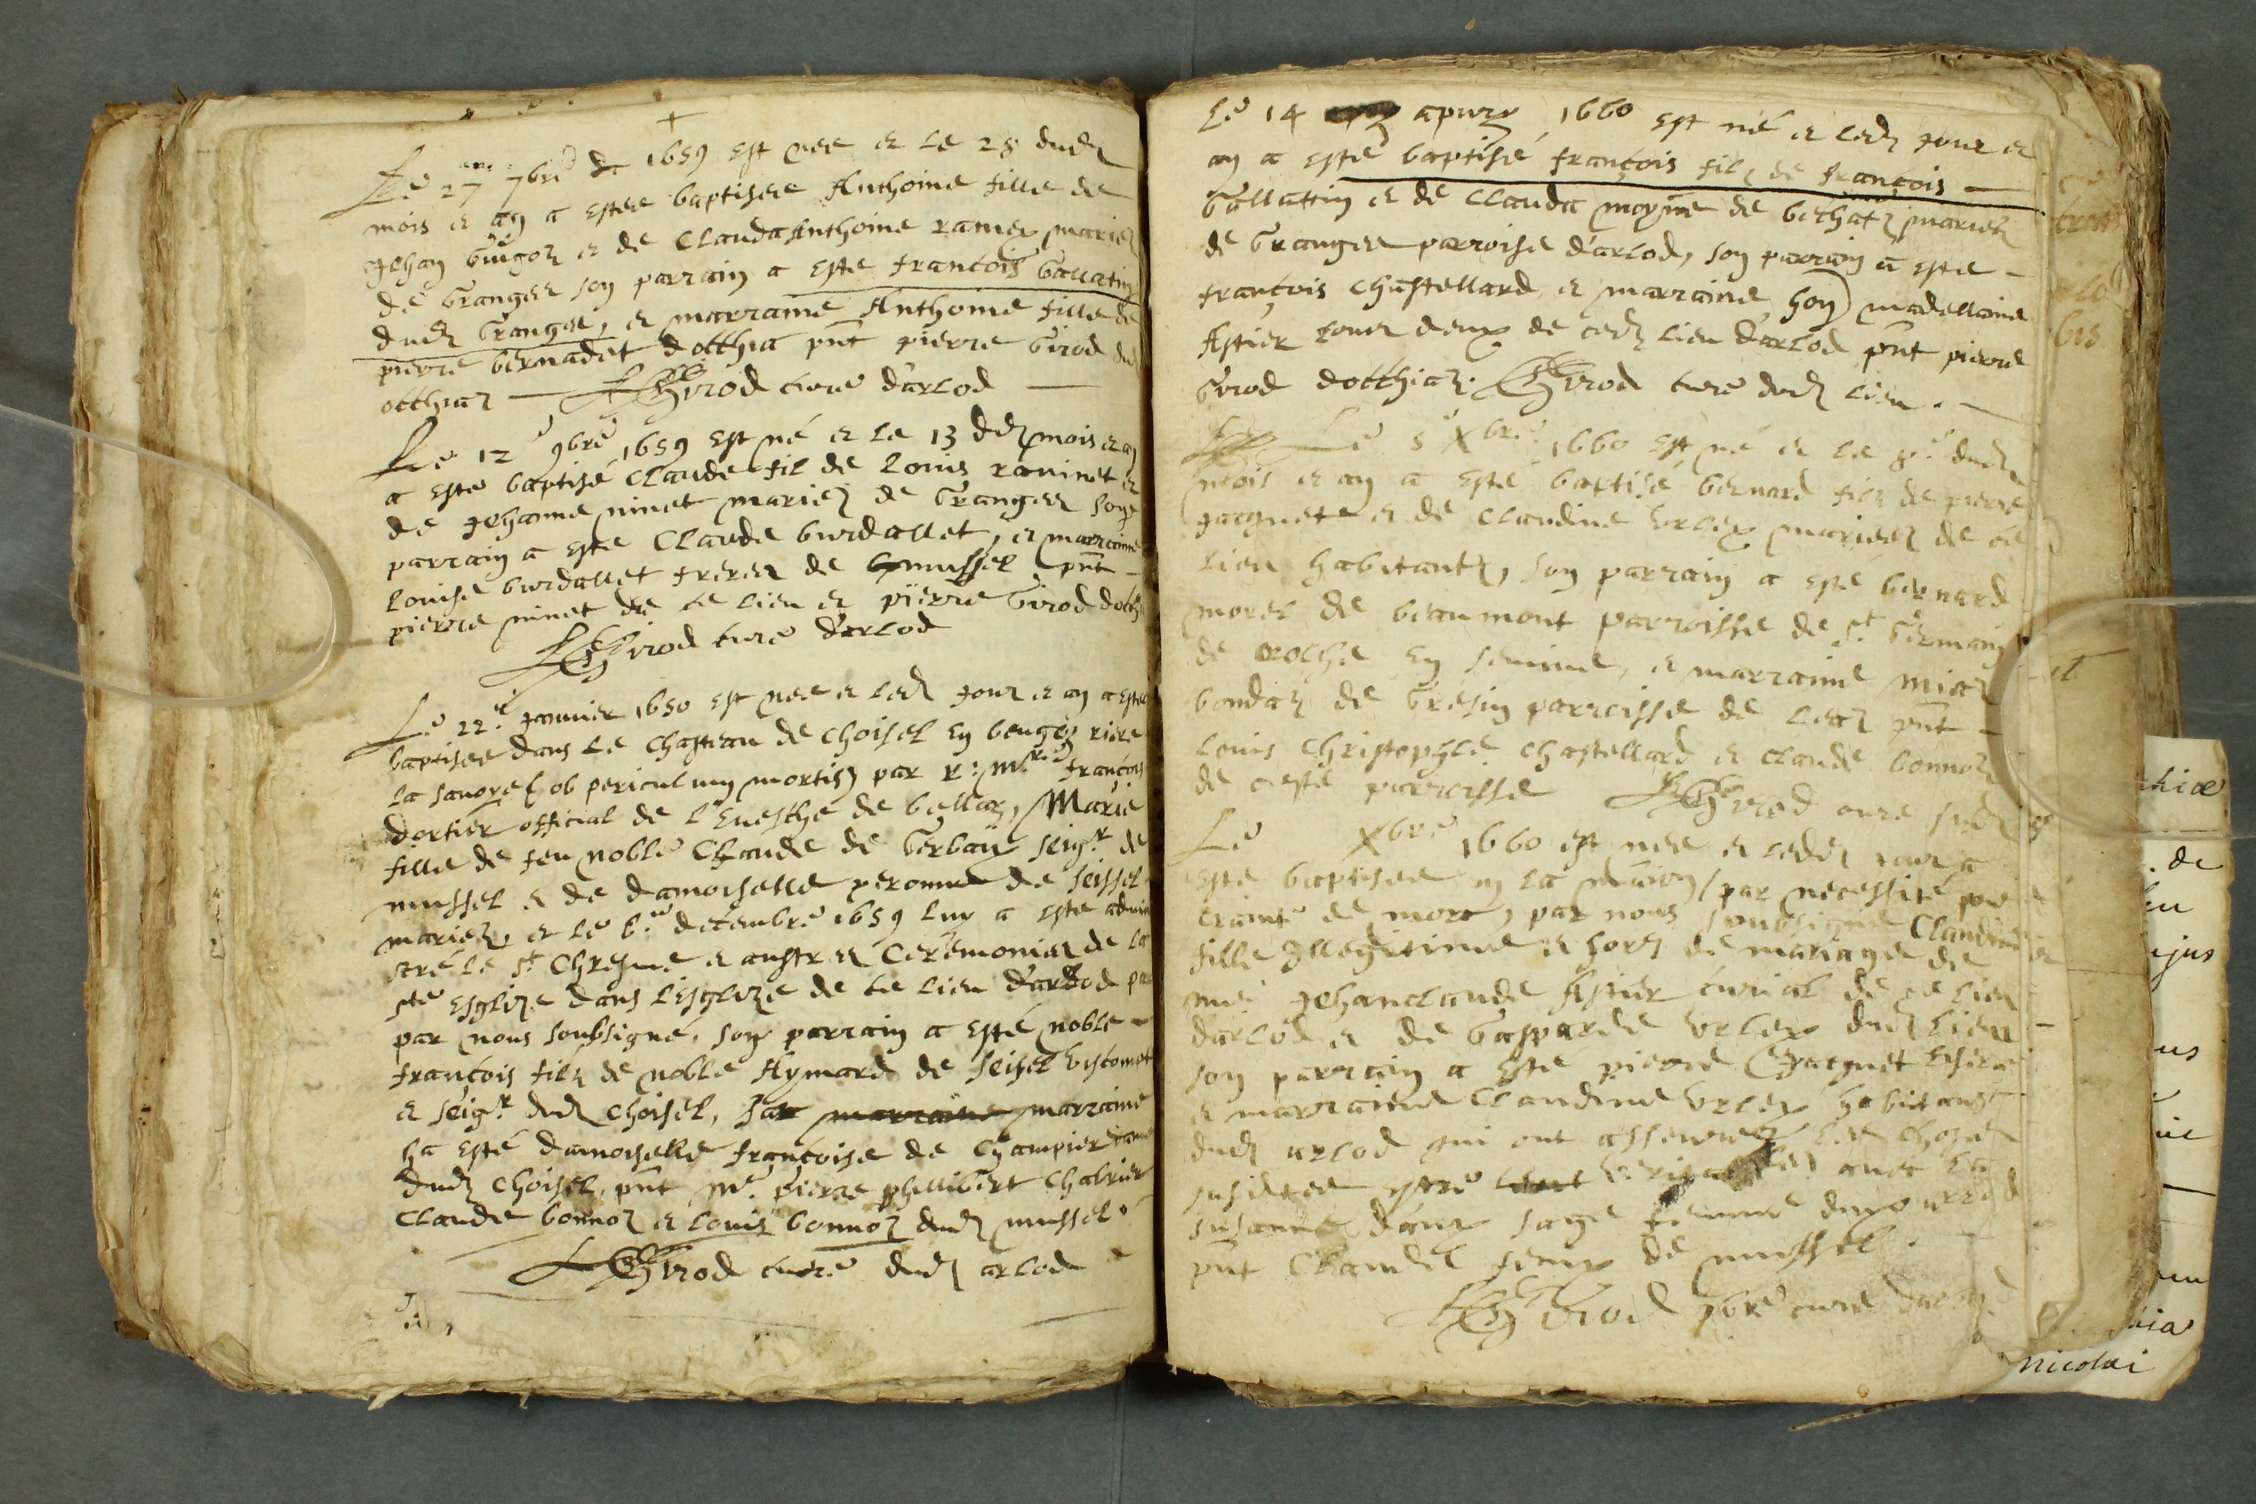 Le 27 7bre 1659 est née et le 28 dud
mois et an a estee baptisee Anthoine fille de
Jehan Guigoz et de Clauda Anthoine ramex mariez
de Granges son parrain a este francois Gallatin
dud Granges, et marraine Anthoine fille de
pierre bernadet docthia pnt pierre Girod dud
octhiaz
Girod curé d'arlod
Le 12e 9bre 1659 est né et le 13 dd mois et an
a este baptisé Claude fil de Louis raninet et
de Jehanne ninet mariez de Granges Son
parrain a este Claude burdallet, et marraine
Louise burdallet freres de mussel pnt
pierre ninet de ce lieu et pierre Girod docth
Girod curé d'arlod
Le 22e Janvier 1650 est nee et led Jour et an a estee
baptisee dans le chasteau de Choisel en beugey riere
la savoye (ob periculum mortis) par Rd Mre françois
dortier official de l'Evesche de bellay, Marie
fille de feu noble Claude de Gerbaix seigr de
mussel et de damoiselle peronne de seissel
mariez, et le 6e decembre 1659 luy a este admin
stré le st Chresme et austres Ceremonies de la
ste esglize dans l'esglize de ce lieu d'arlod par
par nous soubsigné, son parrain a esté noble
françois filz de noble Aymard de seisel viscomte
et seigr dud Choisel, sa marraine
ha esté damoiselle françoise de Champier dame
dud Choisel, pnt Me pierre phillibert Chabrier
Claude bonnoz et louis bonnoz dud mussel
Girod curé dud arlod
Le 14 apvril 1660 est né et led Jour et
an a esté baptisé françois filz de françois
Gallattin et de Clauda moyne de bechatz mariez
de Granges parroise d'arlod, son parrain a este
françois Chastellard et marraine hon madellaine
Astier tous deux de ced lieu d'arlod pnt pierre
Girod docthiaz. Girod curé dud lieu.
Le 5e Xbre 1660 est né et le 8e dud
mois et an a esté baptisé bernard filz de pierre
Jacquet et de Claudine Urlex mariez de ce
lieu habitantz, son parrain a esté bernard
morel de beaumont parroisse de st Germain
de et marraine Mia
bondaz de Gresin parroisse de Leaz pnt
Louis Christophle Chastellard et Claude bonnoz
de ceste parroisse Girod cure sud
Le Xbre 1660 est nee et ledit jour a
este baptisee en la maison par necessité pour
crainte de mort, par nous soubsigné Claudine
fille Illegitime et hors de mariage de
me Jehanclaude Astier curial de ce lieu
d'arlod et de Gasparde Urlex dud lieu
son parrain a este pierre Jacquet
et marraine Claudine Urlex habitans
dud arlod qui ont asseurez les choses
susdites estre veritables avec la
susanne sage femme
pnt Claude de mussel.
Girod pbre curé d'arlod
nicolai